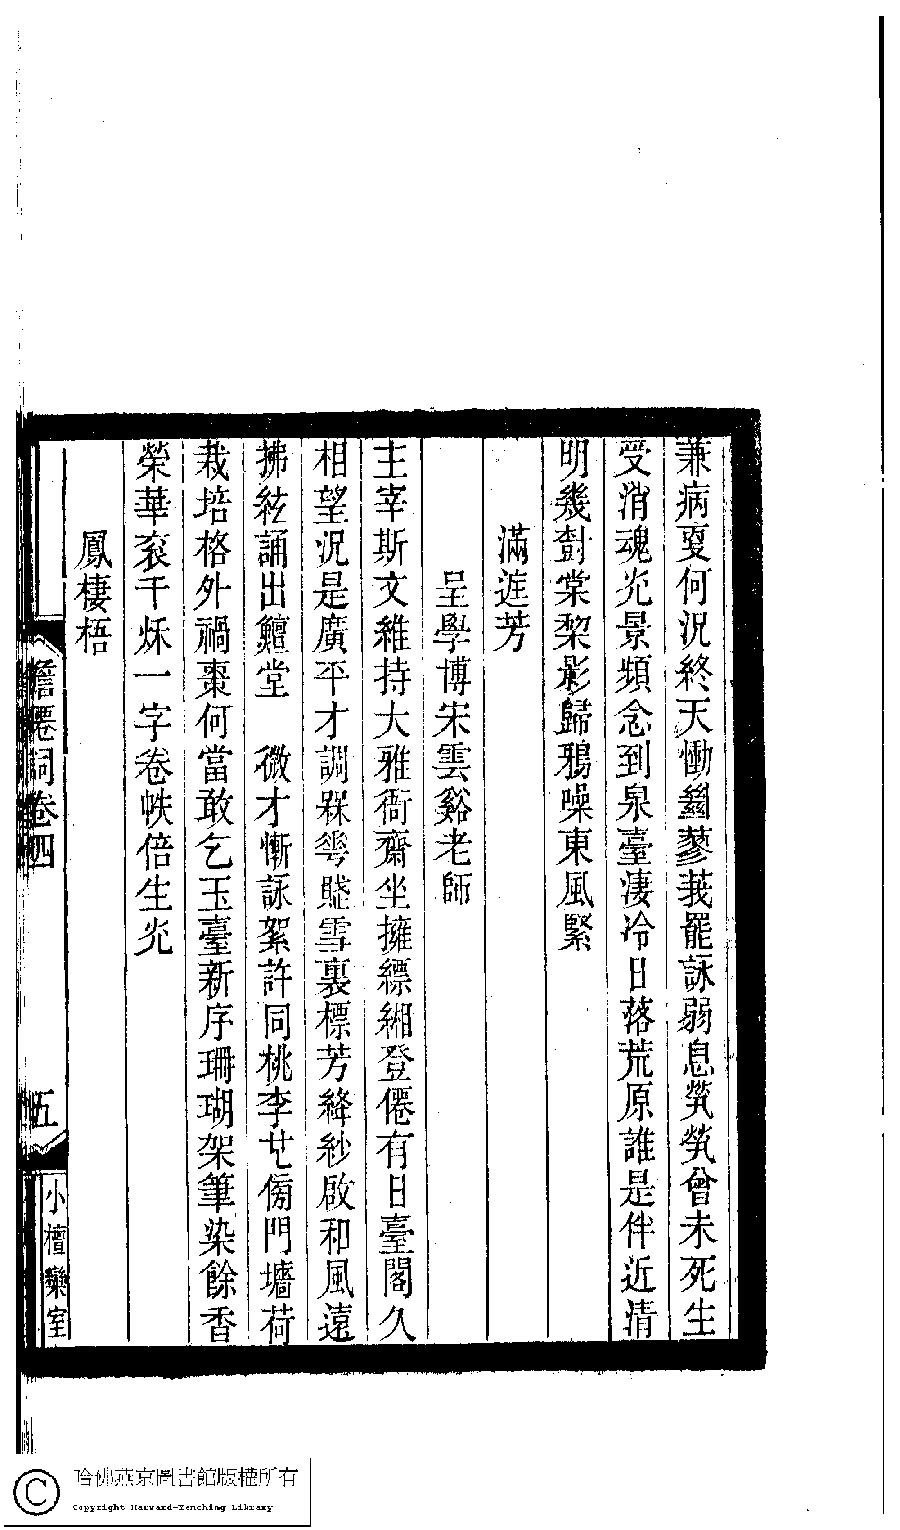 兼病何況終天慟蓼莪罷詠弱息煢煢曾未死生
受消魂光景頻念到泉臺淒冷日落荒原誰是伴近清
明幾對棠棃影歸鴉噪東風緊
滿庭芳
呈學博宋雲谿老師
主宰斯文維持大雅衙齋坐擁縹緗登僊有日臺閣久
相望況是廣平才調槑花賦雪裏標芳絳紗啟和風遠
拂絃誦出鱣堂　微才慚詠絮許同桃李也傍門墻荷
栽培格外禍棗何當敢乞玉臺新序珊瑚架筆染餘香
榮華袞千秌一字卷帙倍生光
鳳棲梧
澹僊詞卷四
五
小檀欒室
哈佛燕京圖書館版權所有
Copyright Harvard-Yenching Library